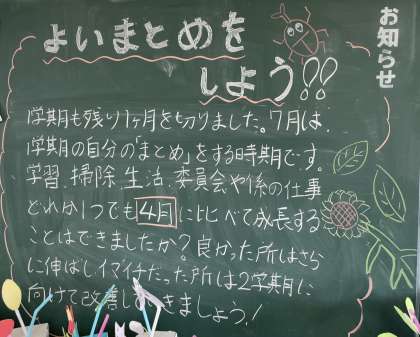 お知らせ
よいまとめを
しよう!!
1学期も残り1ヶ月を切りました。7月は、
1学期の自分の「まとめ」をする時期です。
学習、掃除、生活、委員会や係の仕事
どれか1つでも4月に比べて成長する
ことはできましたか？良かった所はさら
に伸ばし、イマイチだった所は2学期に
向けて改善しきましょう！